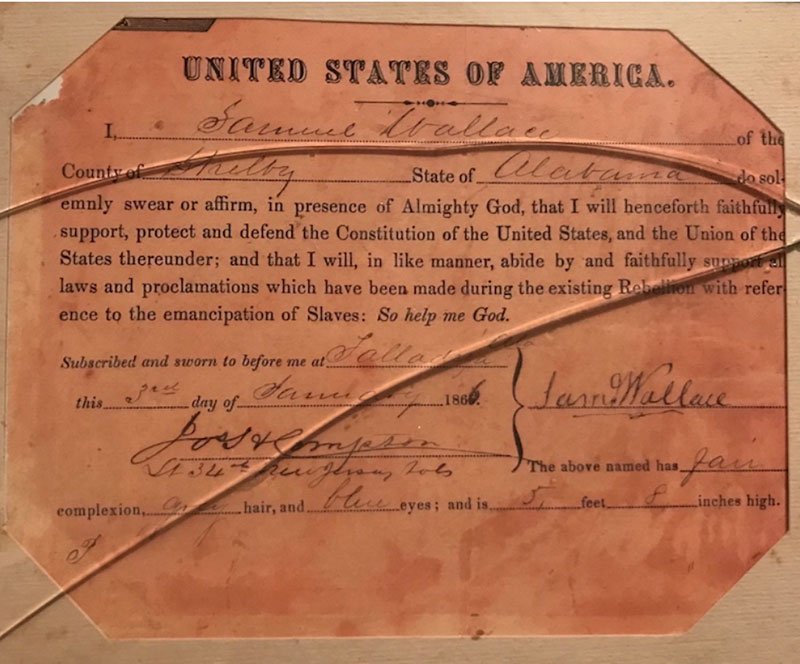 UNITED STATES OF AMERICA.
I, Samuel Wallace of the
County of Shelby State of Alabama do sol-
emnly swear or affirm, in presence of Almighty God, that I will henceforth faithfully
support, protect and defend the Constitution of the United States, and the Union of the
States thereunder; and that I will, in like manner, abide by and faithfully support all
laws and proclamations which have been made during the existing Rebellion with refer-
ence to the emancipation of Slaves: So help me God.
Subscribed and sworn to before me at Talladega Ala
this 3rd day of January 1866.
Sam Wallace
Jos Thompson
Lt 34th New Jersey Vols
The above named has fair
complexion, gray hair, and blue eyes; and is 5, feet 8 inches high.